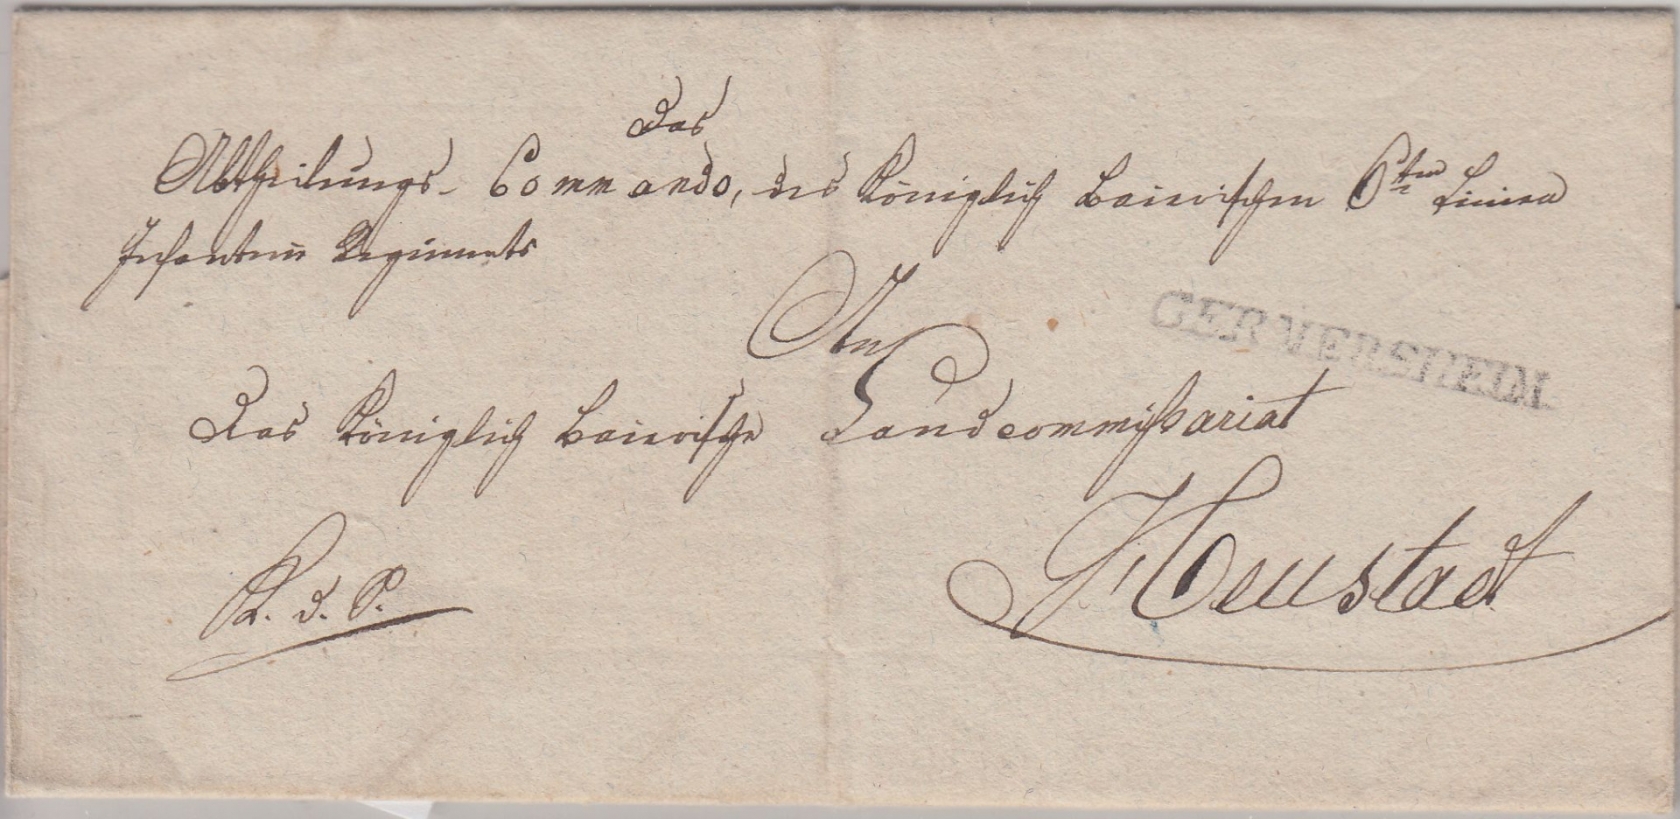 Das
Abtheilungs-Commando, des Königlich Baierischen 6ten Linien
Infanterie Regiments
An
GERMERSHEIM.
Das Königlich Baierische Landcommißariat
Neustadt
K. d. S.